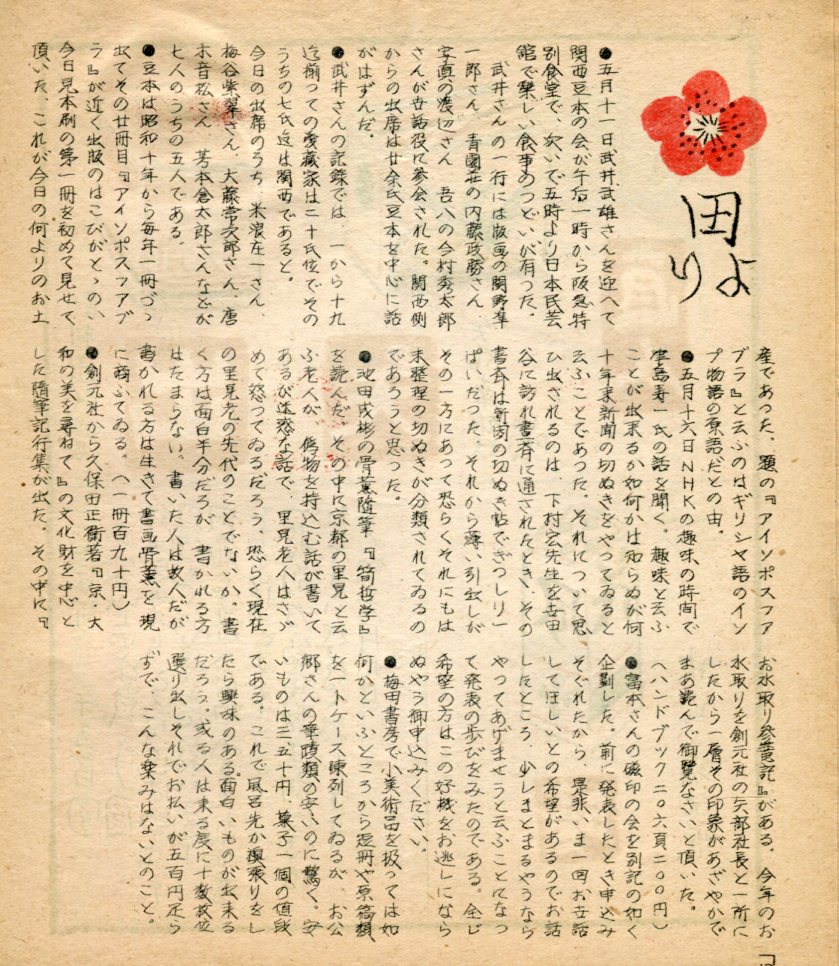 田より
●五月十一日武井武雄さんを迎へて
関西豆本の会が午后一時から阪急特
別食堂で、次いで五時より日本民芸
館で楽しい食事のつどいが有つた。
武井さんの一行には版画の関野準
一郎さん、青園荘の内藤政勝さん、
写真の渡辺さん 吾八の今村秀太郎
さんが世話役に参会された。関西側
からの出席は廿余氏豆本を中心に話
がはずんだ。
●武井さんの記録では、一から十九
迄揃つての愛蔵家は二十氏位でその
うちの七氏迄は関西であると。
今日の出席のうち、米浪庄一さん、
梅谷紫翠さん、大藤常次郎さん、唐
木音松さん 芳本倉太郎さんなどが
七人のうちの五人である。
●豆本は昭和十年から毎年一冊づつ
出てその廿冊目『アイソポスフアブ
ラ』が近く出版のはこびがとゝのい
今日見本刷の第一冊を初めて見せて
頂いた、これが今日の何よりのお土
産であつた、題の『アイソポスフア
ブラ』と云ふのはギリシヤ語のイソ
プ物語の原語だとの由。
●五月十六日NHKの趣味の時間で
寿一氏の話を聞く。趣味と云ふ
ことが出来るか如何かは知らぬが何
十年来新聞の切ぬきをやつてゐると
云ふことであつた。それについて思
ひ出されるのは、下村宏先生を
谷に訪れ書斉に通されたとき、その
書斉は新聞の切ぬき帖でぎつしり一
ぱいだつた、それから薄い引出しが
その一方にあつて恐らくそれにもは
未整理の切ぬきが分類されてゐるの
であろうと思つた。
●池田成彬の骨董随筆『箒哲学』
を読んだ。その中に京都の里見と云
ふ老人が、偽物を持込む話が書いて
あるが迷惑な話で、里見老人はさぞ
めて怒つてゐるだろう、恐らく現在
の里見老の先代のことでないか。書
く方は面白半分だろが 書かれる方
はたまらない。書いた人は故人だが
書かれる方は生きて書画骨董を現
に商ふてゐる。(一冊百九十円)
●創元社から久保田正衛著『京・大
和の美を尋ねて』の文化財を中心と
した随筆記行集が出た。その中に『
お水取り参篭記』がある。今年のお
水取りを創元社の矢部社長と一所に
したから一層その印象があざやかで
まあ読んで御覧なさいと頂いた。
(ハンドブック二〇六頁二〇〇円)
●富本さんの磁印の会を別記の如く
企劃した。前に発表したとき申込み
そぐれたから、是非いま一回お世話
してほしいとの希望があるのでお話
したところ、少しまとまるやうなら
やつてあげませうと云ふことになつ
て発表の歩びをみたのである。全じ
希望の方はこの好機をお逃しになら
ぬやう御申込みください。
●梅田書房で小美術品を扱つては如
何かといふところから短冊や原稿類
を一トケース陳列してゐるが、お公
郷さんの筆蹟類の安いのに驚く。安
いものは三五十円、菓子一個の値段
である。これで風呂先か横張りをし
たら興味のある面白いものが出来る
だろう。或る人は来る度に十数枚位
選り出しそれでお払いが五百円足ら
ずで、こんな楽みはないとのこと。